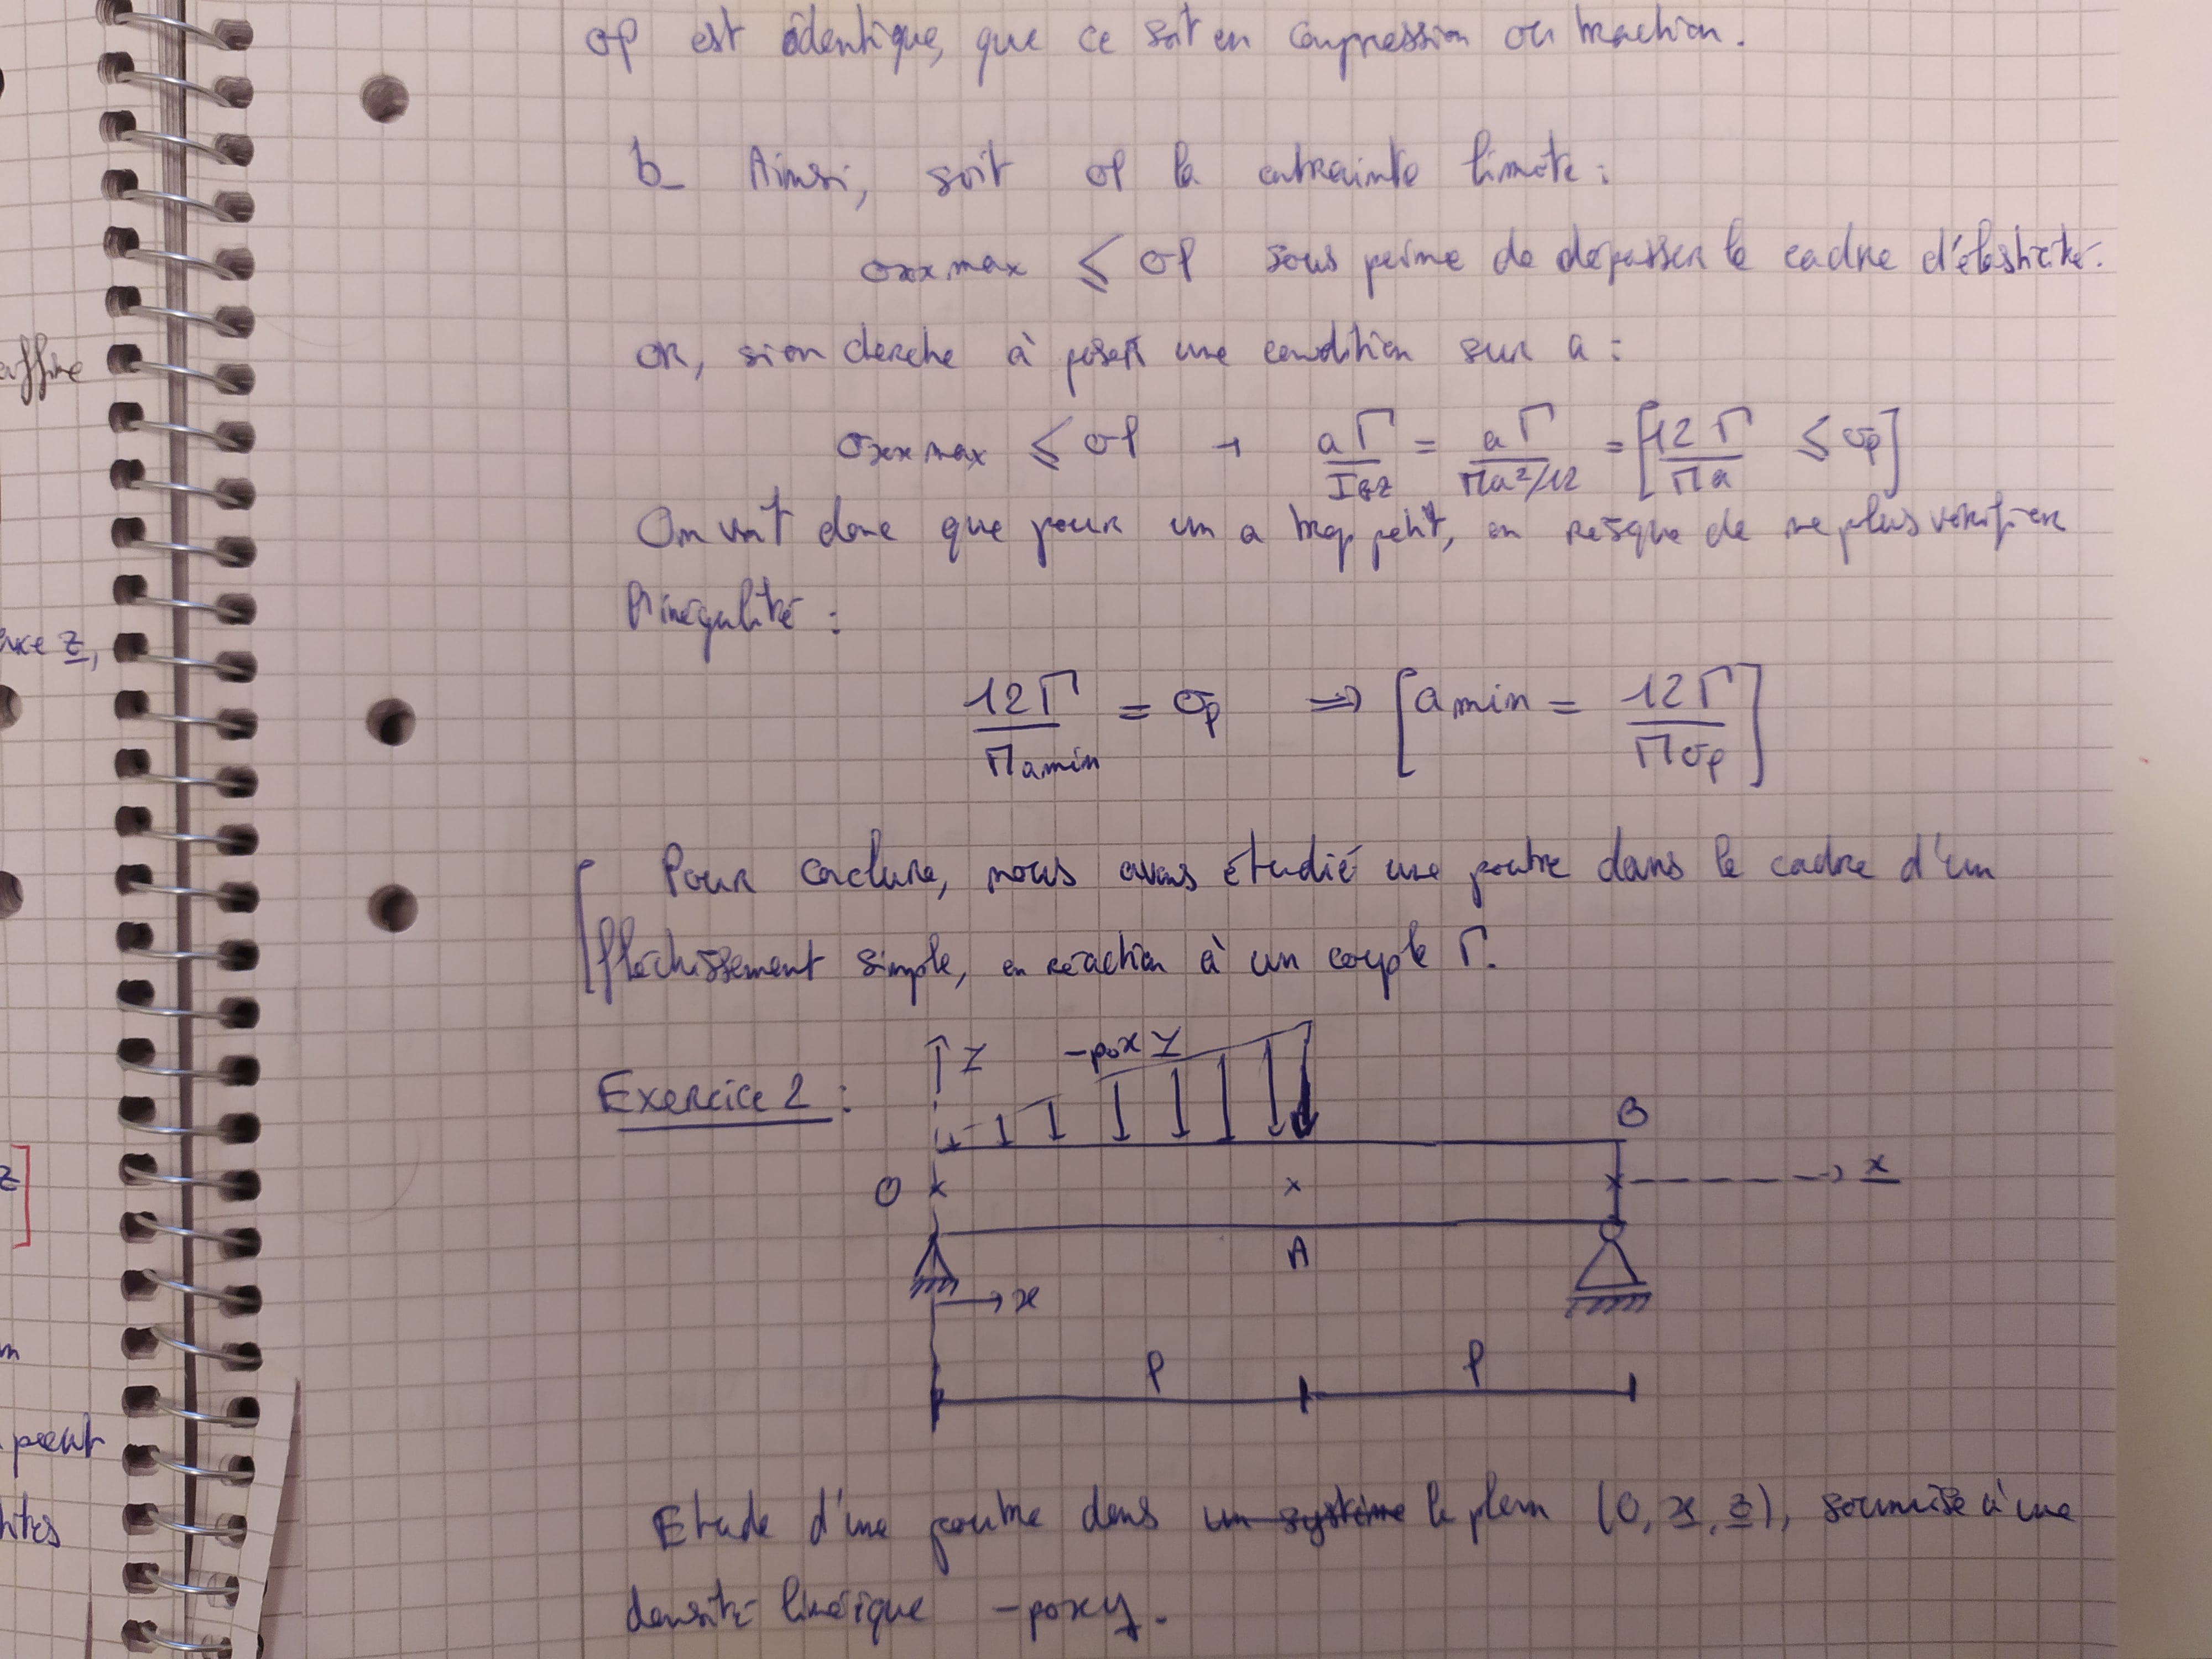 σp est identique, que ce soit en compression ou traction.
b_ Ainsi, soit σp la contrainte limite :
σxx max ⩽ σp sous peine de dépasser le cadre d'élasticité.
affine
or, si on cherche à poser une condition sur a :
σxx max ⩽ σp → aΓ/IGz = aΓ/(Πa²/12) = [12Γ/Πa ⩽ σp]
On voit donc que pour un a trop petit, on risque de ne plus vérifier
l'inégalité :
z,
12Γ/Πamin = σp ⇒ [amin = 12Γ/Πσp]
Pour conclure, nous avons étudié une poutre dans le cadre d'un
fléchissement simple, en réaction à un couple Γ.
Exercice 2 :
-pox y
B
z]
O
x
A
x
l l
peut
Etude d'une poutre dans un système le plan (O, x, z), soumise à une
densité linéique -poxy.